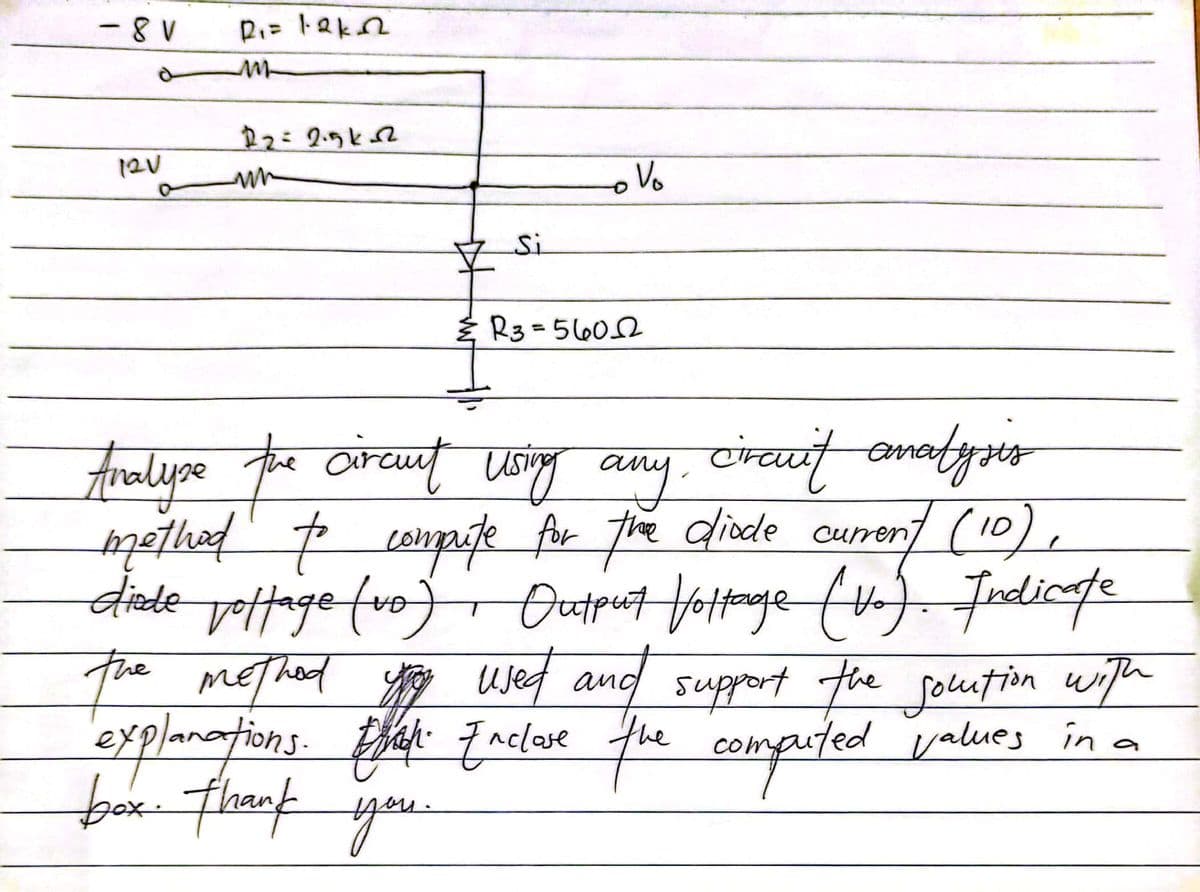 - 8 V R1= 1.2kΩ
R2= 2.5kΩ
12V
Vo
Si
R3=560Ω
Analyze the circuit using any circuit analysis
method to compute for the diode current (ID),
diode voltage (VD), Output Voltage (Vo). Indicate
the method used and support the solution with
explanations. Enclose the computed values in a
box. Thank you.